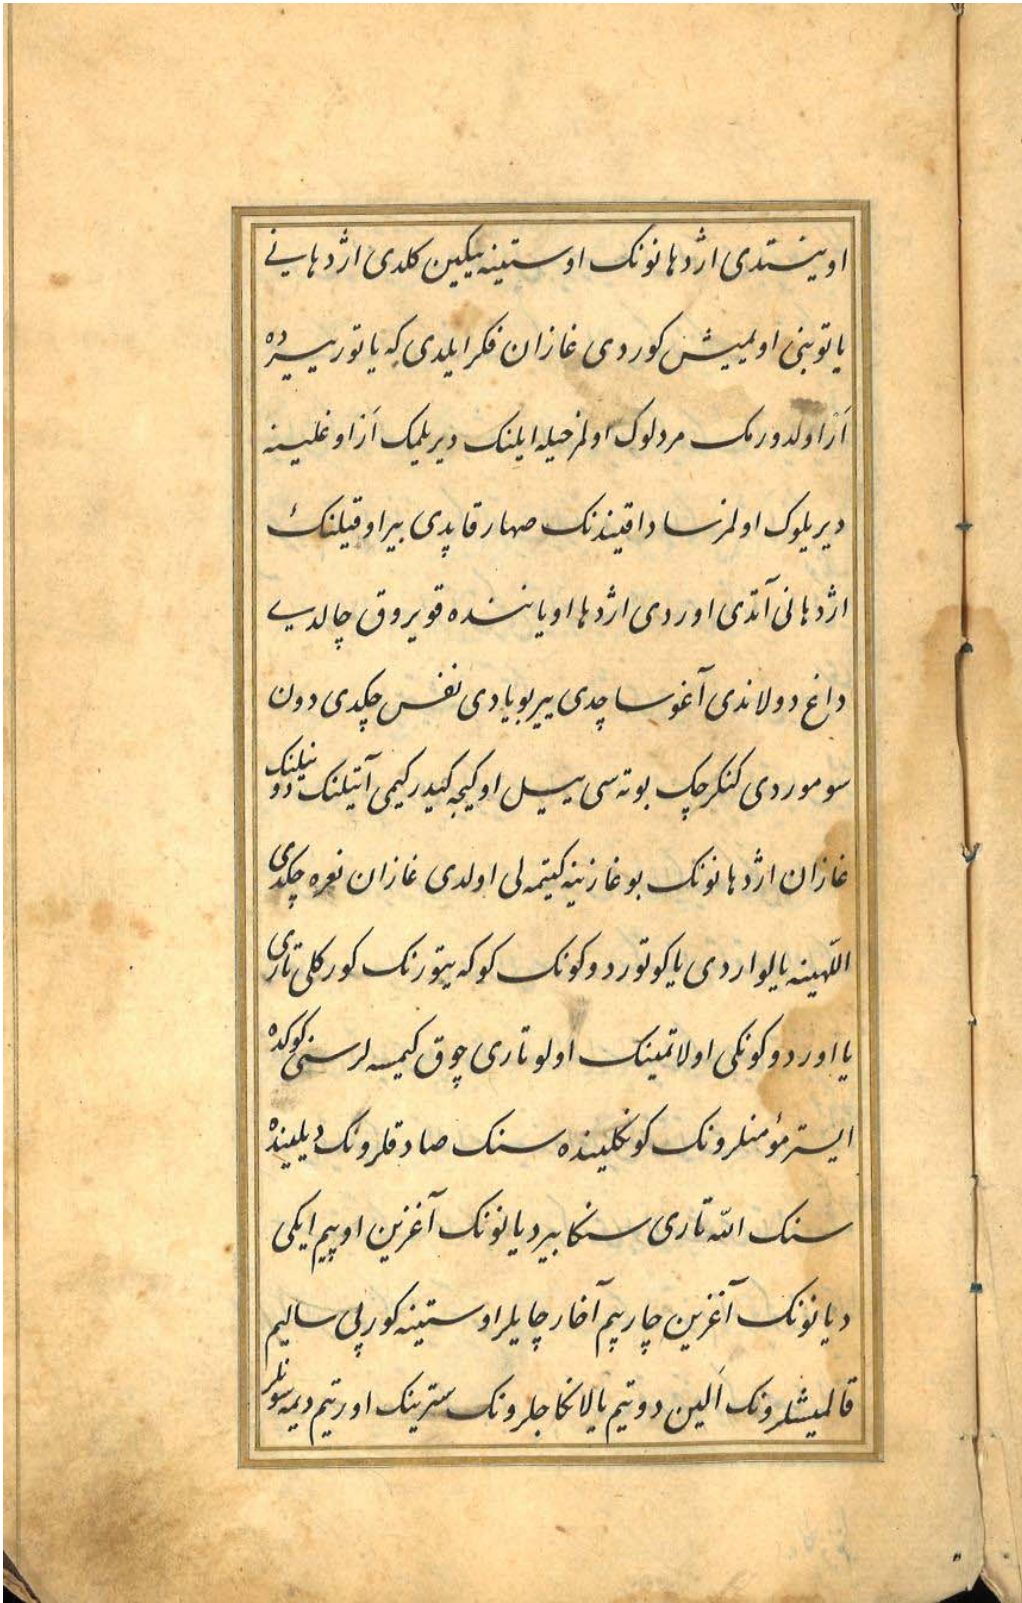 اویستدی اژدهانونک اوستینه ییکین کلدی اژدهانی
یاتوبنی اولمیش کوردی غازان فکر ایلدی که یاتور ییرده
اَرْ اولدورمک مردلوک اولمز حیله ایلنک دیریلمک اَرْ اوغلینه
دیریلوک اولمز ساداقیندنک صهار قاپدی بیر اوقیلنک
اژدهانی آتدی اوردی اژدها اویاننده قویروق چالدی
داغ دولاندی آغو ساچدی ییر بویادی نفس چکدی دون
سوموردی کنکرچک بوته سی ییل اوکیجه کیدر کیمی آتیلنک دونیلنک
غازان اژدهانونک بوغازینه کیتمه لی اولدی غازان نعره چکدی
اللهینه یالواردی یا کوتوردوکونک کوکه یتورنک کورکلی تاری
یا اوردوکونکی اولاتمینک اولو تاری چوق کیمسه لر سنی کوکده
ایستر مؤمنلرونک کونکلینده سنک صادقلرونک دیلینده
سنک الله تاری سنکا بیر دیانونک آغزین اوپیم ایکی
دیانونک آغزین چارپیم آخار چایلر اوستینه کورپی سالیم
قالمیشلرونک اَلین دوتیم یالانکاجلرونک سترینک اورتیم دیمه سونلر